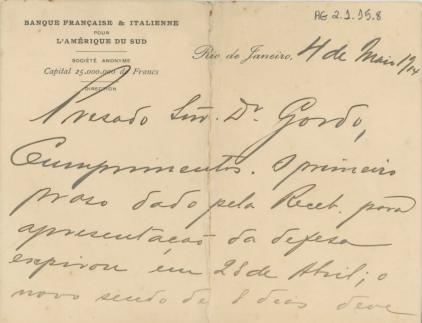 AG 2.1.15.8
BANQUE FRANÇAISE & ITALIENNE
POUR
L'AMÉRIQUE DU SUD
SOCIÉTÉ ANONYME
Capital 25.000.000 de Francs
DIRECTION
Rio de Janeiro, 4 de Maio
Presado Snr. Dr. Gordo,
Cumprimentos. O primeiro
praso dado pela Receb. para
apresentação da defesa
expirou em 28 de Abril; o
novo sendo de 8 dias deve